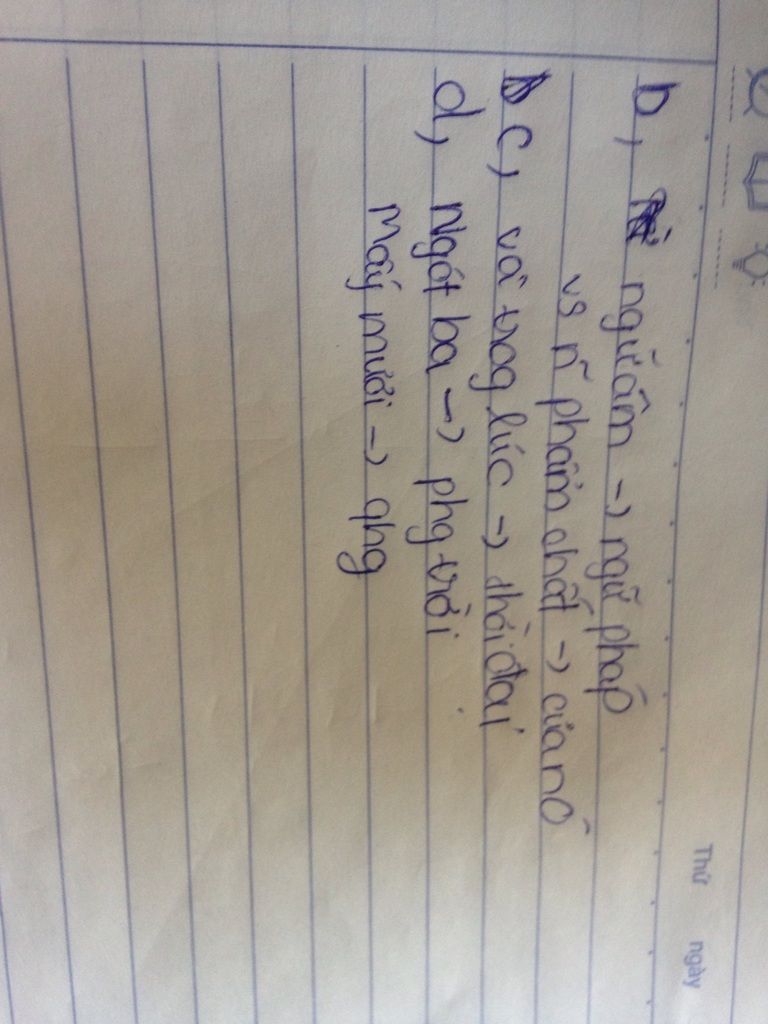 Thứ ngày
b, ngữ âm -> ngữ pháp
vs ñ phẩm chất -> của nó
c, và trog lúc -> thời đại
d, Ngót ba -> phg trời
Mấy mươi -> qhg